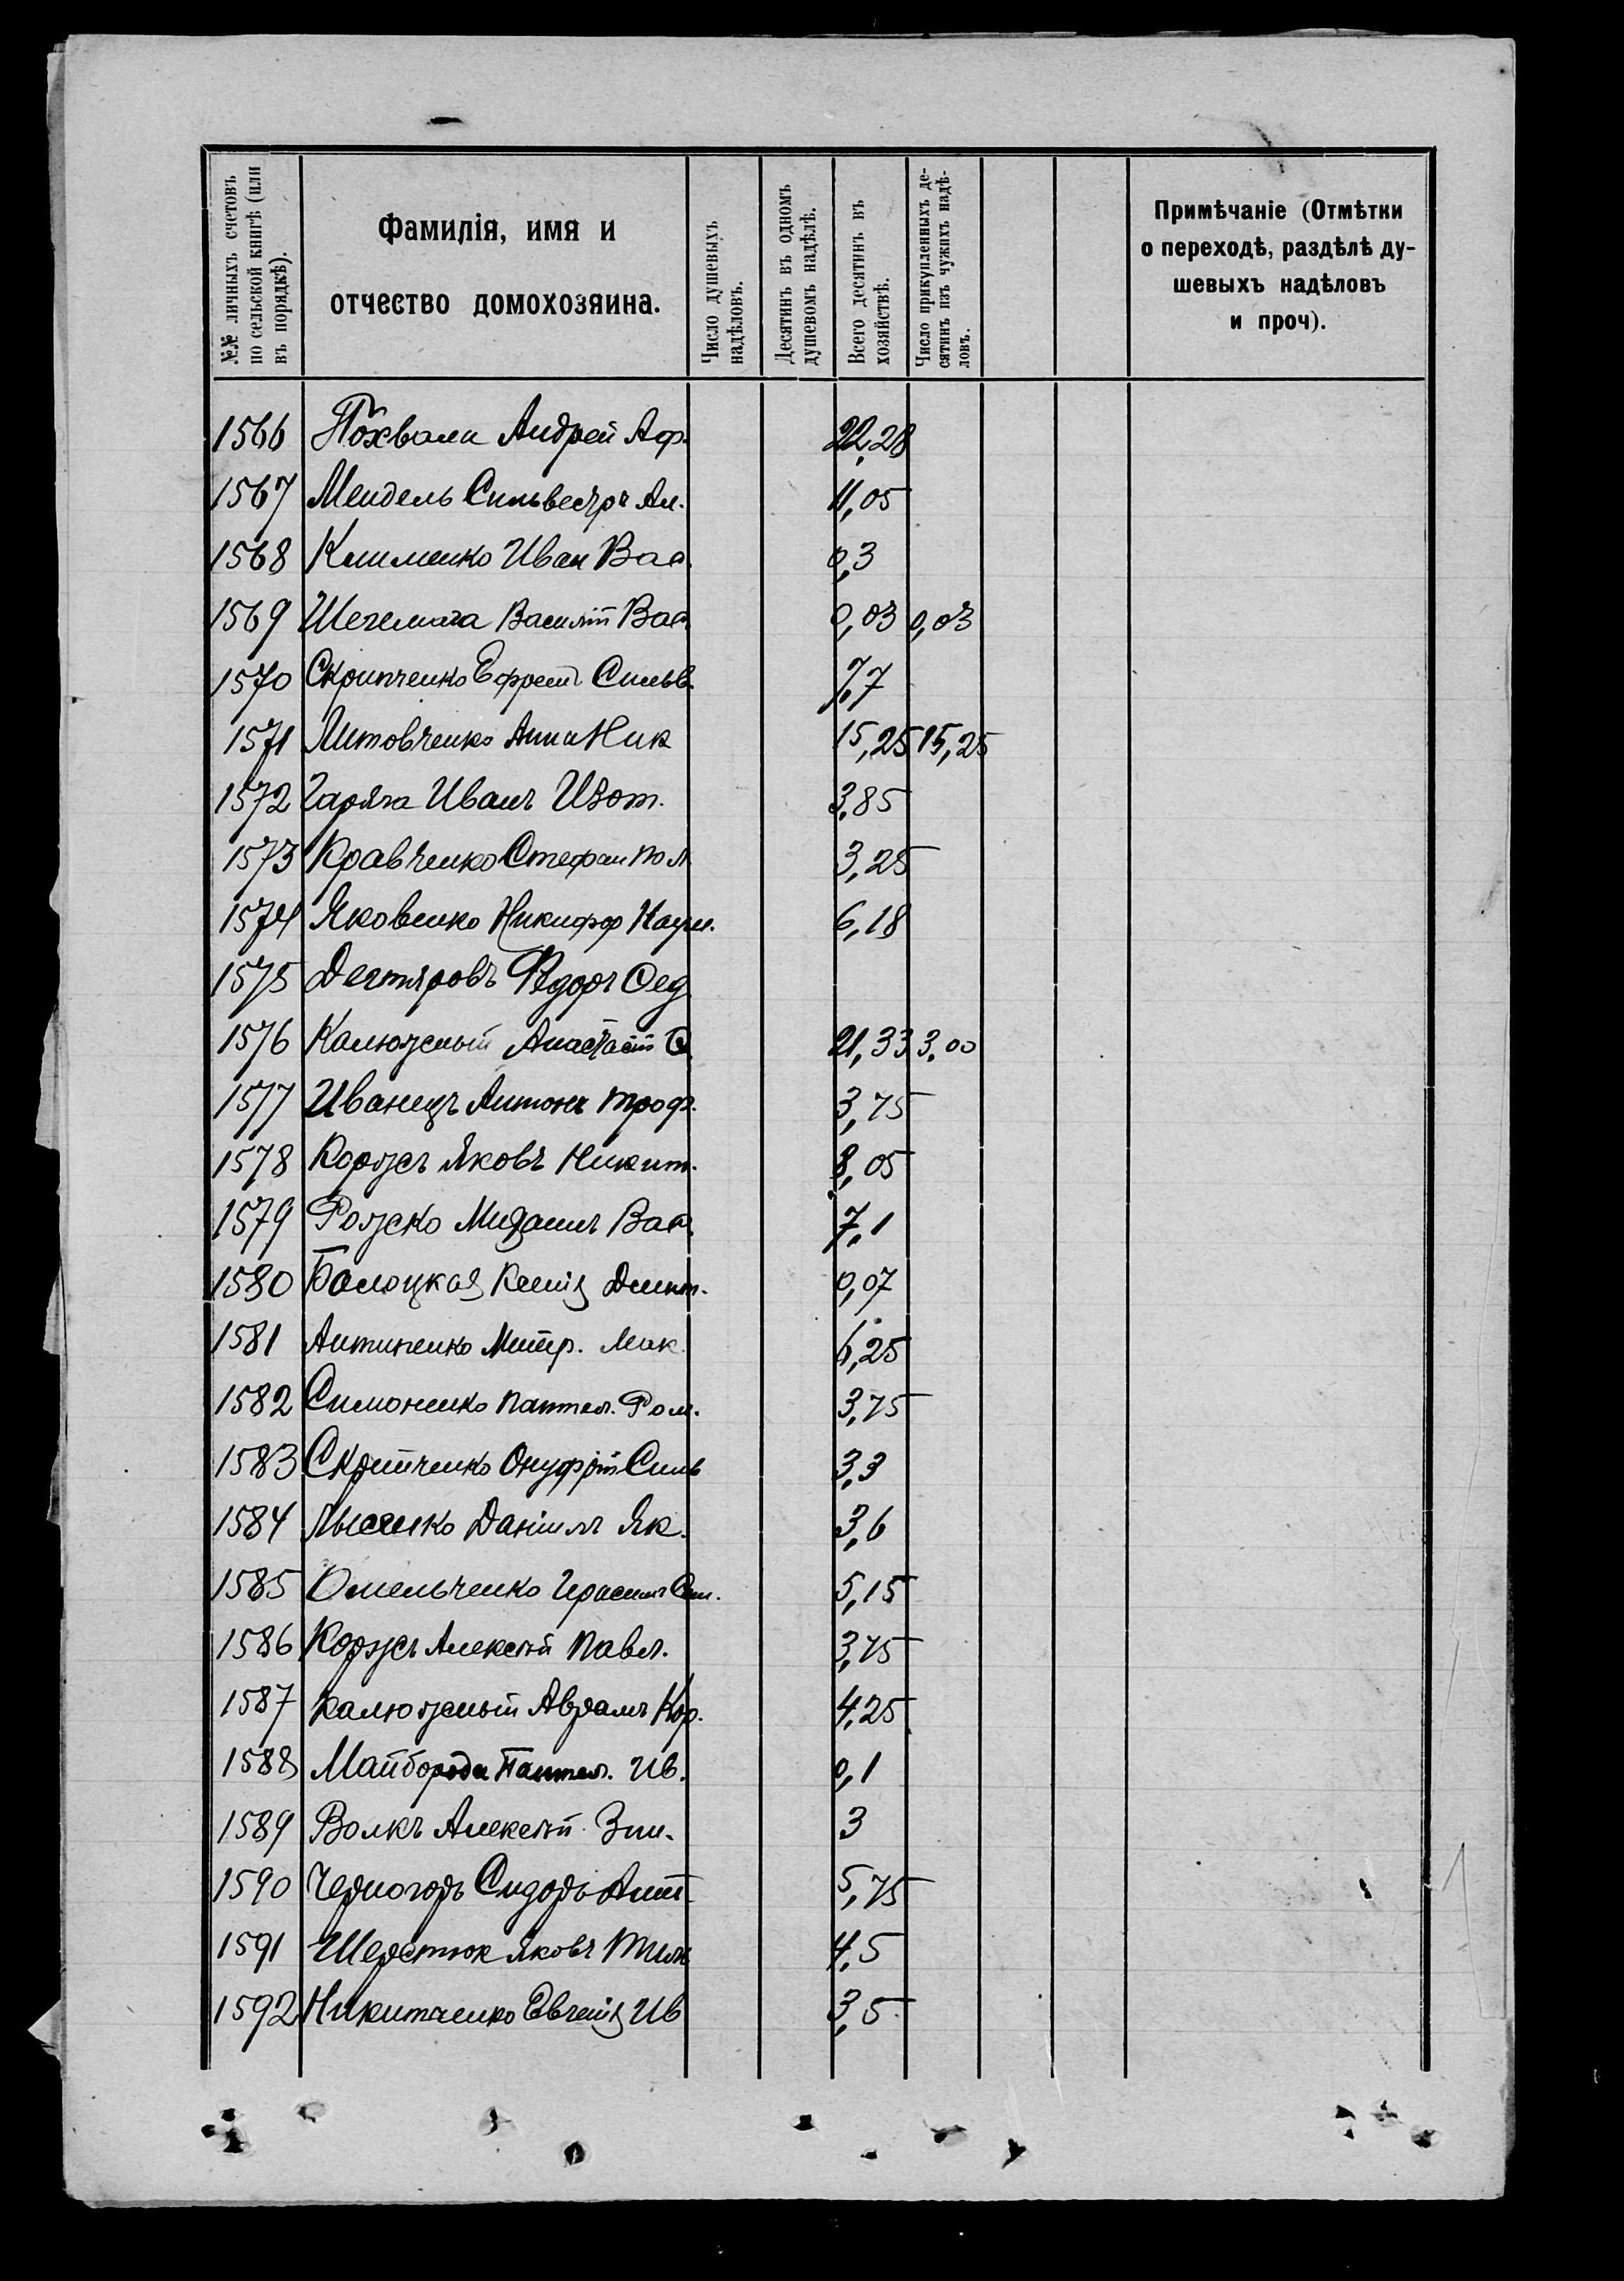 №№ личныхъ счетовъ по сельской книгѣ (или въ порядкѣ).
Фамилія, имя и отчество домохозяина.
Число душевыхъ надѣловъ.
Десятинъ въ одномъ душевомъ надѣлѣ.
Всего десятинъ въ хозяйствѣ.
Число прикупленныхъ десятинъ изъ чужихъ надѣловъ.
Примѣчаніе (Отмѣтки
о переходѣ, раздѣлѣ ду-
шевыхъ надѣловъ
и проч).
1566 Похвала Андрей Аф. 22,28
1567 Мендель Сильвестръ Ал. 11,05
1568 Клименко Иван Вас. 0,3
1569 Шегемага Василій Вас. 0,03 0,03
1570 Скрипченко Ефремъ Сильв. 7,7
1571 Литовченко Анна Ник 15,25 15,25
1572 Гаряча Иванъ Изот. 3,85
1573 Кравченко Стефан Пол 3,25
1574 Яковенко Никифор Наум. 6,18
1575 Дегтяровъ Ѳедоръ Ѳед
1576 Калюжный Анастасій Ѳ 21,33 3,00
1577 Иванецъ Антонъ Троф. 3,75
1578 Коржъ Яковъ Никит. 8,05
1579 Рожско Вас. 7,1
1580 Балоцкая Ксенія Дмит. 0,07
1581 Антипенко Митр. Мак. 6,25
1582 Симоненко Пантел. Ром. 3,75
1583 Скрипченко Онуфрій Сильв 3,3
1584 Лысенко Даніилъ Як. 3,6
1585 Омельченко Герасимъ Сем. 5,15
1586 Коржъ Алексѣй Павл. 3,75
1587 Калюжный Аврамъ Кор. 4,25
1588 Майборода Пантел. Ив. 0,1
1589 Волкъ Алексѣй Зин. 3
1590 Черногоръ Сидоръ Ант. 5,75
1591 Шерстюк Яковъ Тим 4,5
1592 Никитченко Евгенія Ив 3,5